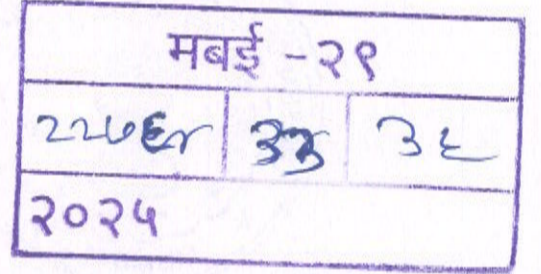 मबई -२९
२२७६४ ३३ ३६
२०२५